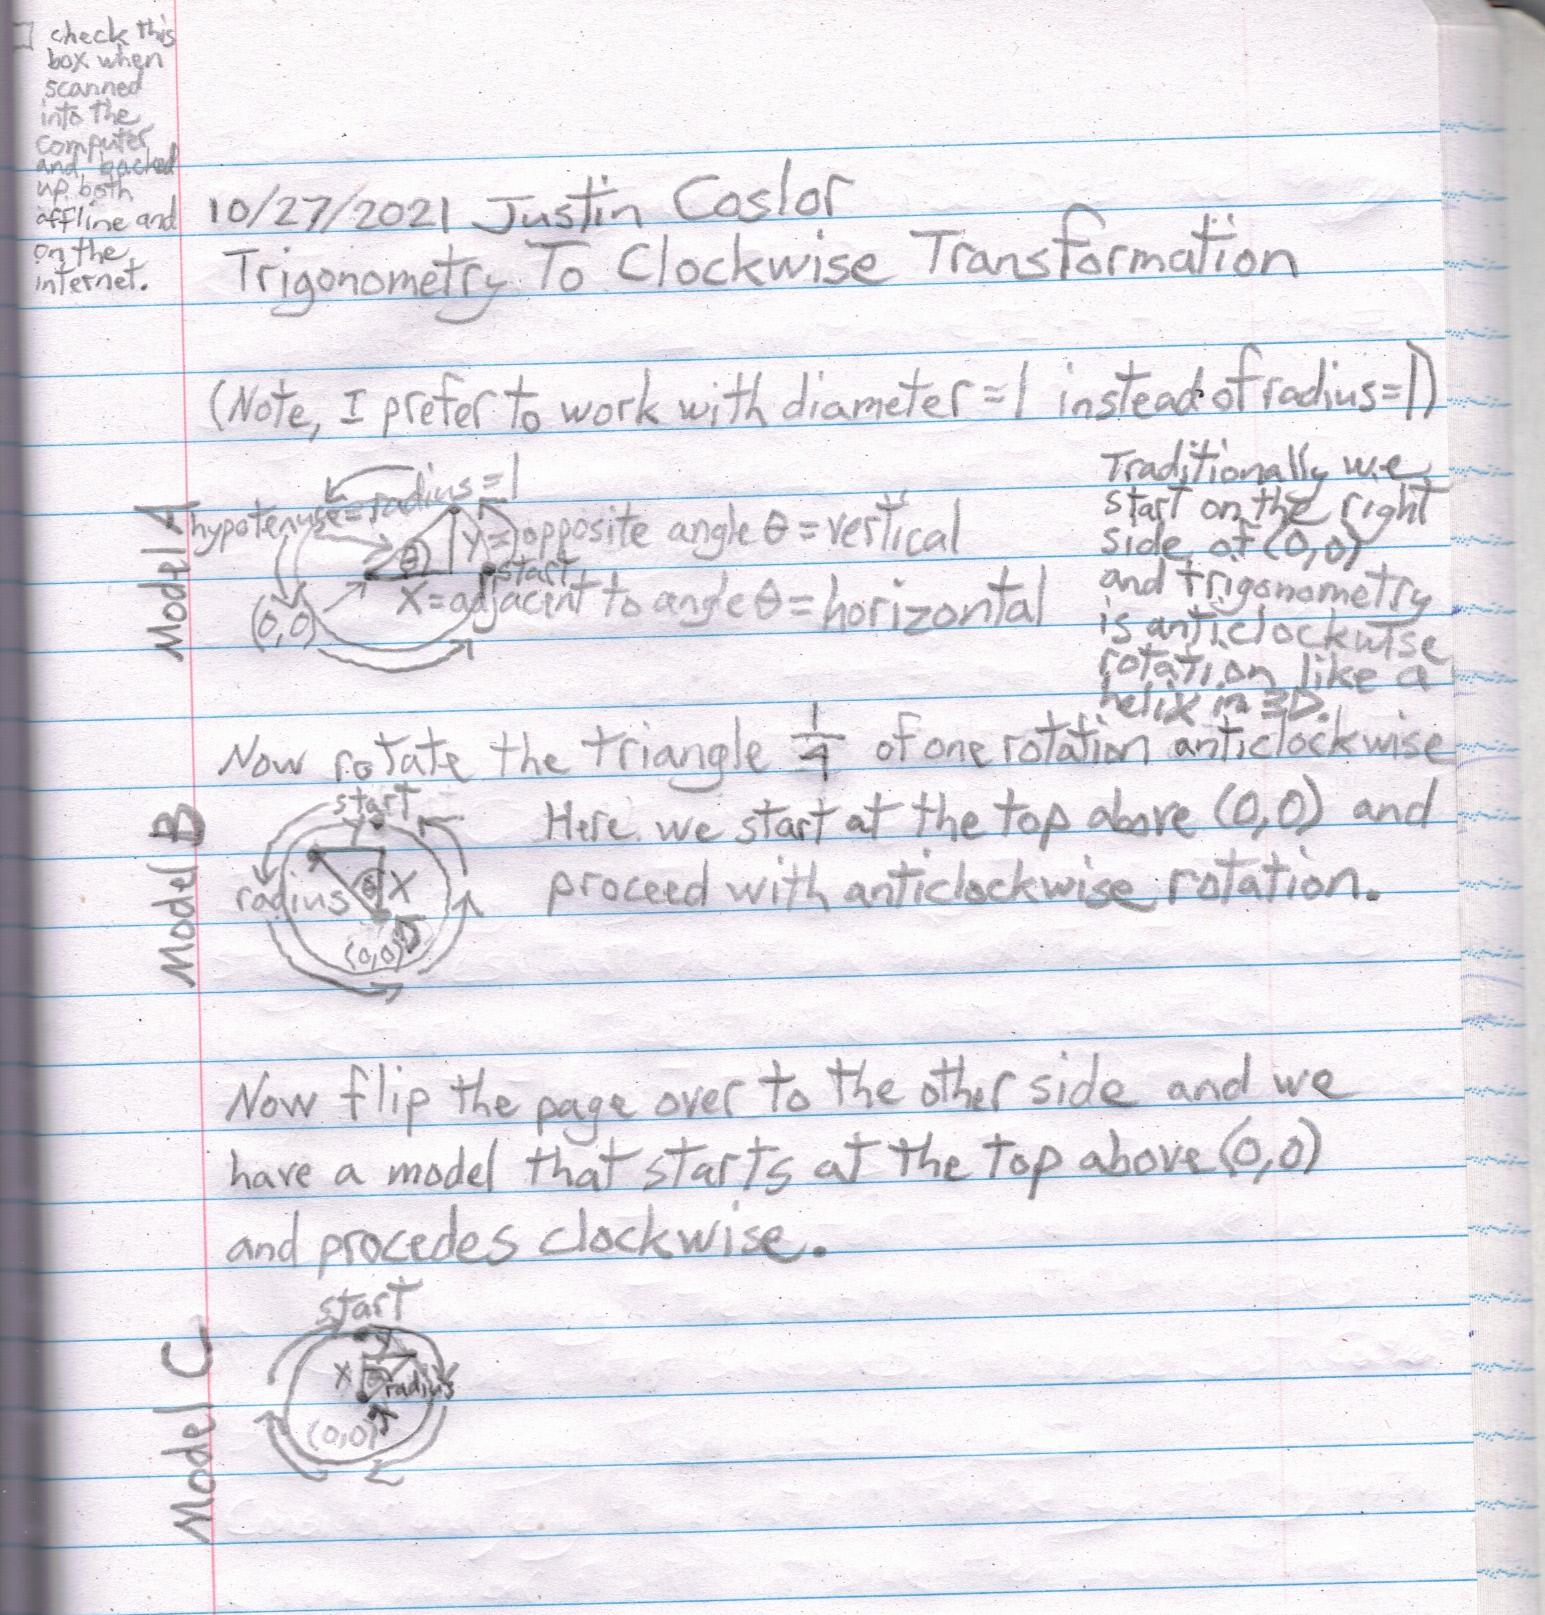 check this
box when
scanned
into the
computer
and backed
up both
offline and
on the
internet.
10/27/2021 Justin Coslor
Trigonometry To Clockwise Transformation
(Note, I prefer to work with diameter=1 instead of radius=1)
Model A
hypotenuse=radius=1
Y=opposite angle θ=vertical
θ
start
X=adjacent to angle θ=horizontal
(0,0)
Traditionally we
start on the right
side of (0,0)
and trigonometry
is anticlockwise
rotation like a
helix in 3D.
Now rotate the triangle 1/4 of one rotation anticlockwise
Model B
start
Y
radius
θ
X
(0,0)
Here we start at the top above (0,0) and
proceed with anticlockwise rotation.
Now flip the page over to the other side and we
have a model that starts at the top above (0,0)
and procedes clockwise.
Model C
start
Y
X
θ
radius
(0,0)